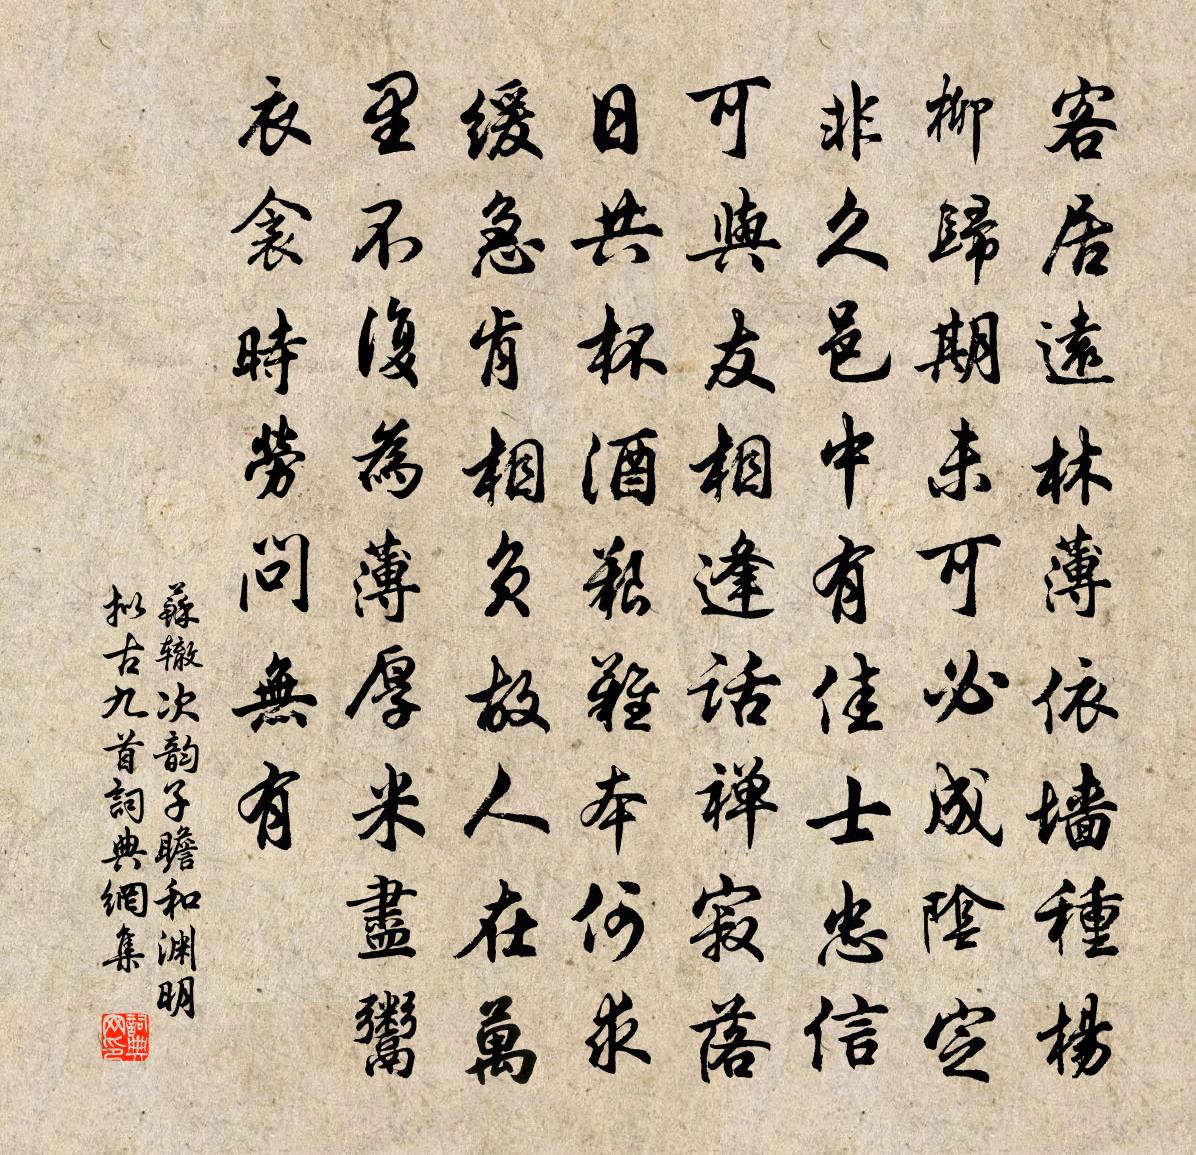 客居遠林薄依墻種楊
柳歸期未可必成陰定
非久邑中有佳士忠信
可與友相逢話禅寂落
日共杯酒艱難本何求
緩急肯相负故人在萬
里不復為薄厚米盡鬻
衣衾時勞問無有
蘇辙次韵子瞻和渊明
拟古九首詞典網集
詞典
网印